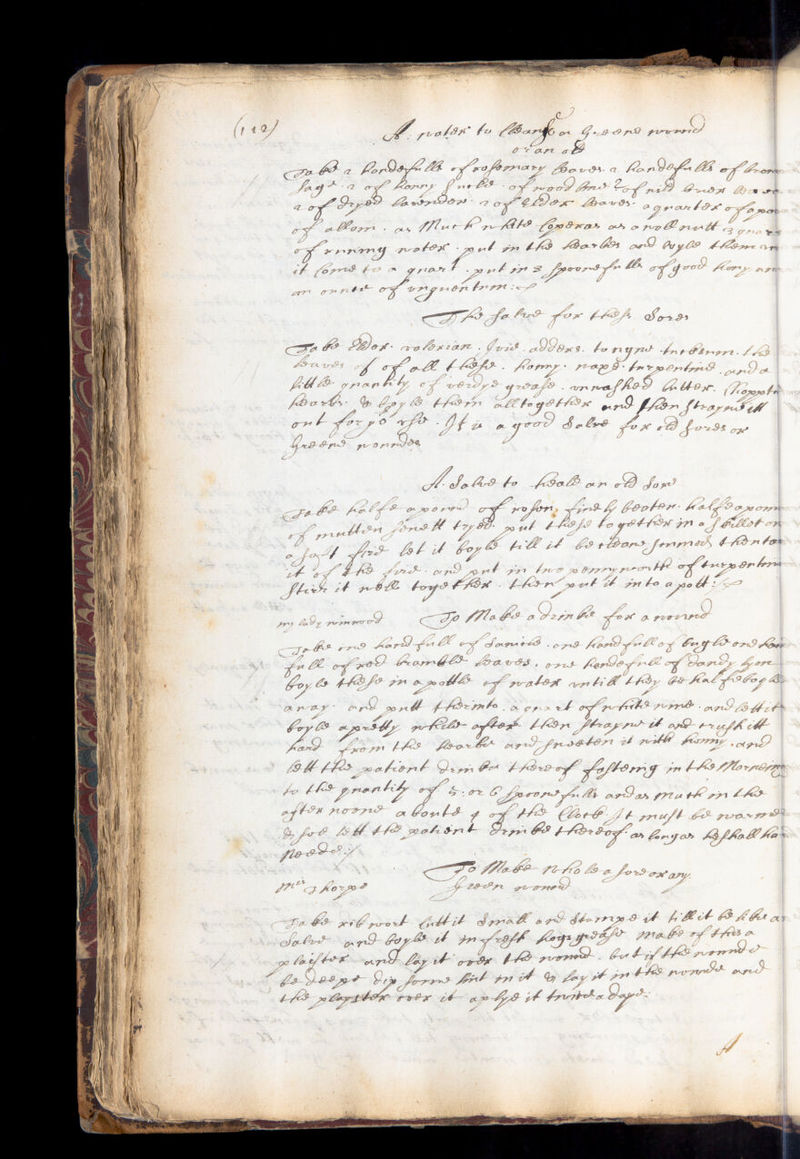 (112)
A water to Cleanse a Greene wound
or an old
Take a handefulle of rosemary leaves a handefulle of
sage a of honny suckle of wood bine of red brier leaves
a of dryed lavender a of Elder leaves a quarter of a
of allom as Much white Coperas as a wallnutt 3
of running water put in the hearbes and boyle them
it Come to a quart put in 3 spoonefulls of good hony
an ounce of unguentum
The salve for these Sores
Take Elder valerian Ivie adders tongue the
leaves of all these honny waxe turpentine and a
little quantity of verdye grease unwashed butter Choppe
hearbs & boyle them alltogether and then strayne itt
out for yo use It is a good Salve for old sores or
Greene woundes
A Salve to heale an old Sore
Take halfe a pound of rosen finely beaten halfe a
of mutten suett tryed put these together in a skillet on
a soft fire let it boyle till it be cleane then
it of the fire and put in two pennyworth of
Stirr it well together then put it into a pott
my lady winwood To Make a drinke for a wound
Take one hand full of Sanicle one handfull of bugle one
full of red bramble leaves one handefull of dandy
boyle these in a pottle of water untill they be halfe
away and putt thereinto a quart of white wine and lett it
boyle a pretty while after then strayne it and crush itt
hard from the hearbs and sweeten it with honny and
lett the patient drinke thereof fasteing in the
to the quantity of 5 or 6 spoonefulls and as much in the
after noone aboute 4 of the Clock It must be
& soe lett the patient drinke thereof as long as he shall
Neede
Mrs Thorpe To Make whole a sore or any
Green wound
Take ribwort Cutt it Small and Stampe it till it be like a
Salve and boyle it in fresh hogs grease make of this a
plaister and lay it over the wound but if the wounde
be deepe dip some lint in it & lay it in the wounde and
the playster over it aplye it twice a daye
A